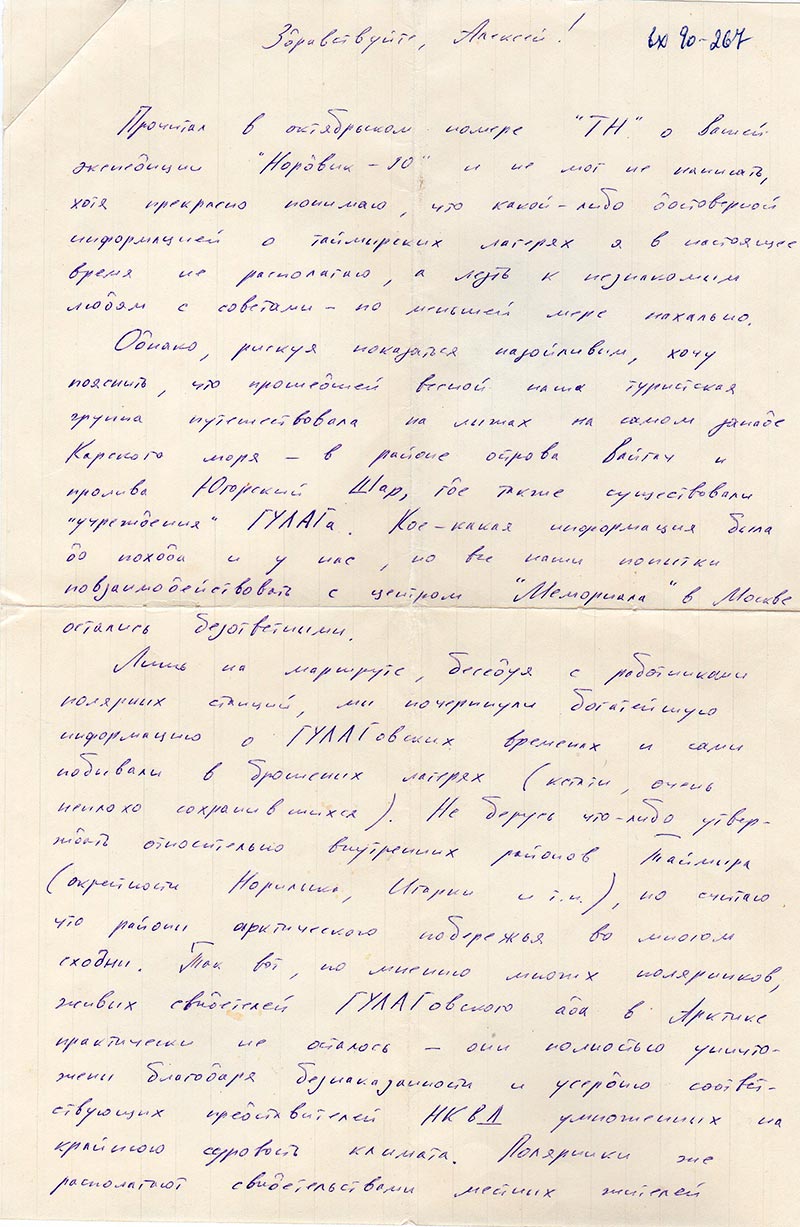 Здравствуйте, Алексей!
вх 90-267
Прочитал в октябрьском номере "ТН" о вашей
экспедиции "Нордвик-90" и не мог не написать,
хотя прекрасно понимаю, что какой-либо достоверной
информацией о таймырских лагерях я в настоящее
время не располагаю, а лезть к незнакомым
людям с советами - по меньшей мере нахально.
Однако, рискуя показаться назойливым, хочу
пояснить, что прошедшей весной наша туристская
группа путешествовала на лыжах на самом западе
Карского моря - в районе острова Вайгач и
пролива Югорский Шар, где также существовали
"учреждения" ГУЛАГа. Кое-какая информация была
до похода и у нас, но все наши попытки
повзаимодействовать с центром "Мемориала" в Москве
остались безответными.
Лишь на маршруте, беседуя с работниками
полярных станций, мы почерпнули богатейшую
информацию о ГУЛАГовских временах и сами
побывали в брошенных лагерях (кстати, очень
неплохо сохранившихся). Не берусь что-либо утвер-
ждать относительно внутренних районов Таймыра
(окрестности Норильска, Игарки и т.п.), но считаю
что районы арктического побережья во многом
сходны. Так вот, по мнению многих полярников,
живых свидетелей ГУЛАГовского ада в Арктике
практически не осталось - они полностью уничто-
жены благодаря безнаказанности и усердию соответ-
ствующих представителей НКВД умноженных на
крайнюю суровость климата. Полярники же
располагают свидетельствами местных жителей